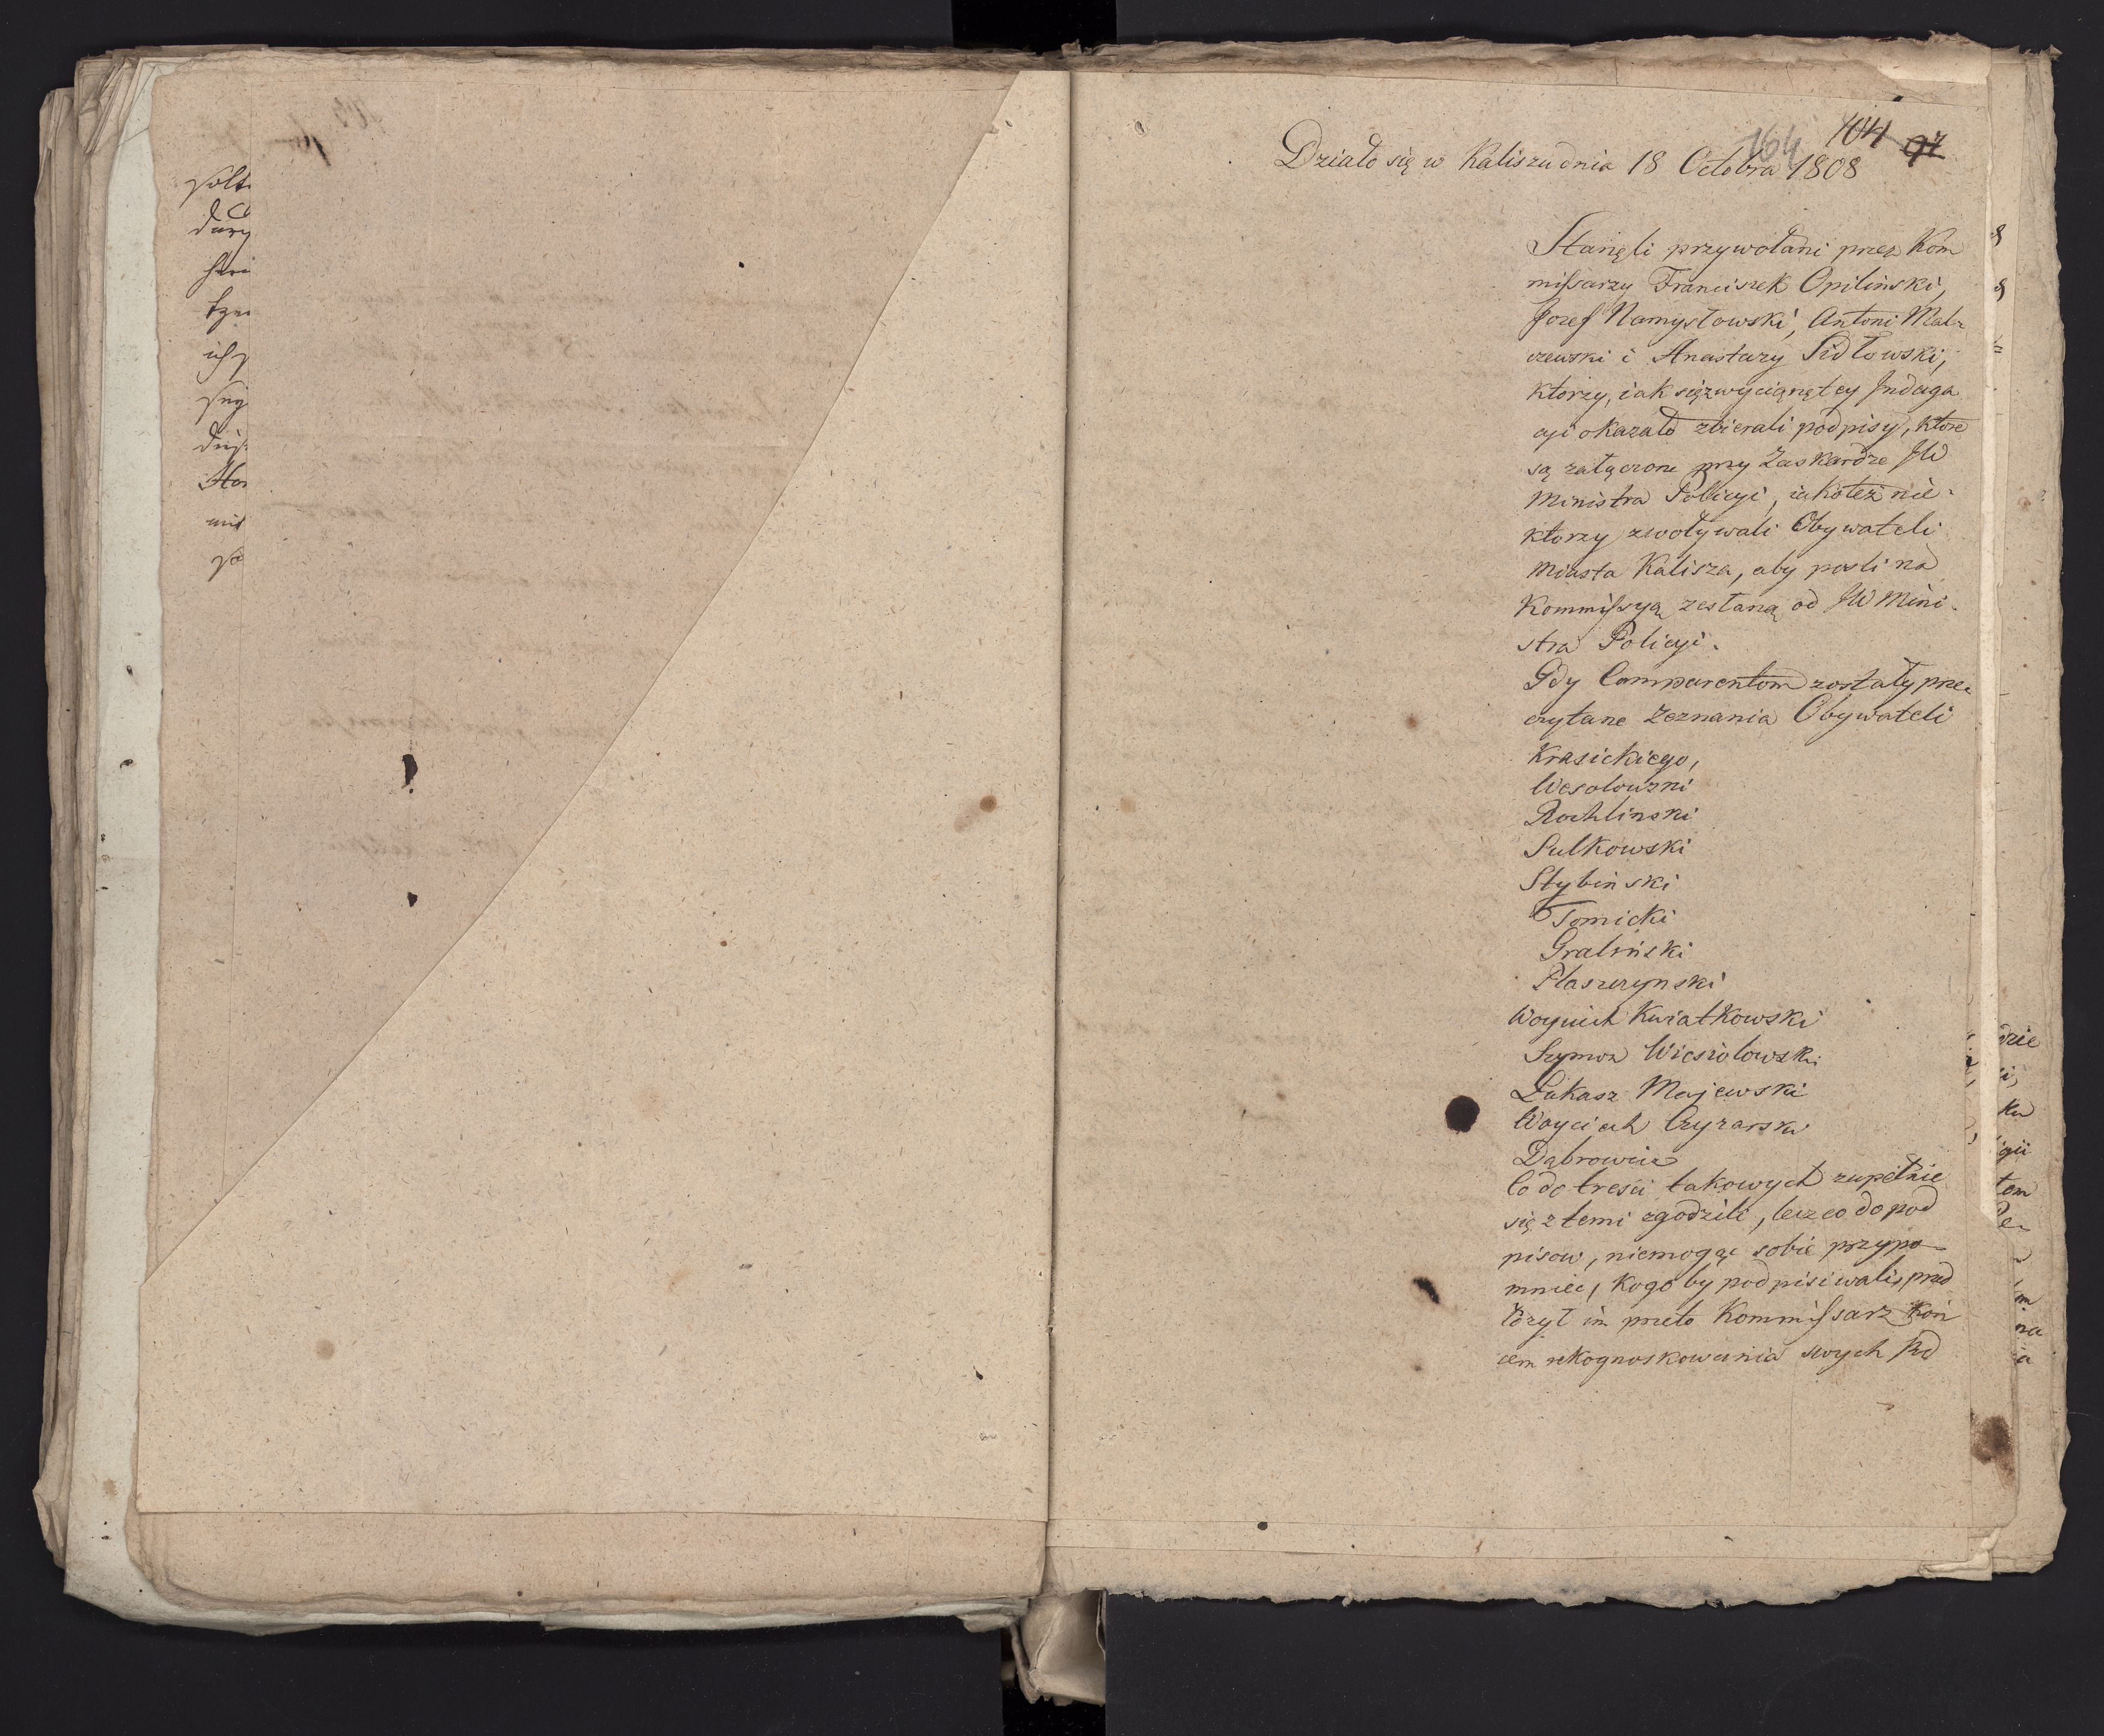 Działo się w Kaliszu dnia 18 Octobra 1808
164 104 97
Stanęli przywołani przez Kom
missarzy Franciszek Opilinski,
Jozef Namysłowski, Antoni Mal-
czewski i Anastazy Sidłowski,
ktorzy, iak się z wyciągnętey Indaga
cyi okazało zbierali podpisy, które
są załączone przy Zaskardze JW
Ministra Policyi, iakoteż nie-
ktorzy zwoływali Obywateli
Miasta Kalisza, aby poszli na
Kommissyą zesłaną od JW Mini-
stra Policyi.
Gdy Comparentom zostały prze-
czytane Zeznania Obywateli
Krasickiego,
Wesolowski
Rochlinski
Sulkowski
Stybinski
Tomicki
Graliński
Plaszczynski
Woyciech Kwiatkowski
Szymon Wiesiolowski
Łukasz Majewski
Woyciech
Co do tresci takowych zupełnie
się z temi zgodzili, lecz co do pod
pisow, niemogąc sobie przypo-
mniec, kogo by podpisiwali, przed
łożył im przeto Kommissarz koń
cem rekognoskowania swych Pod